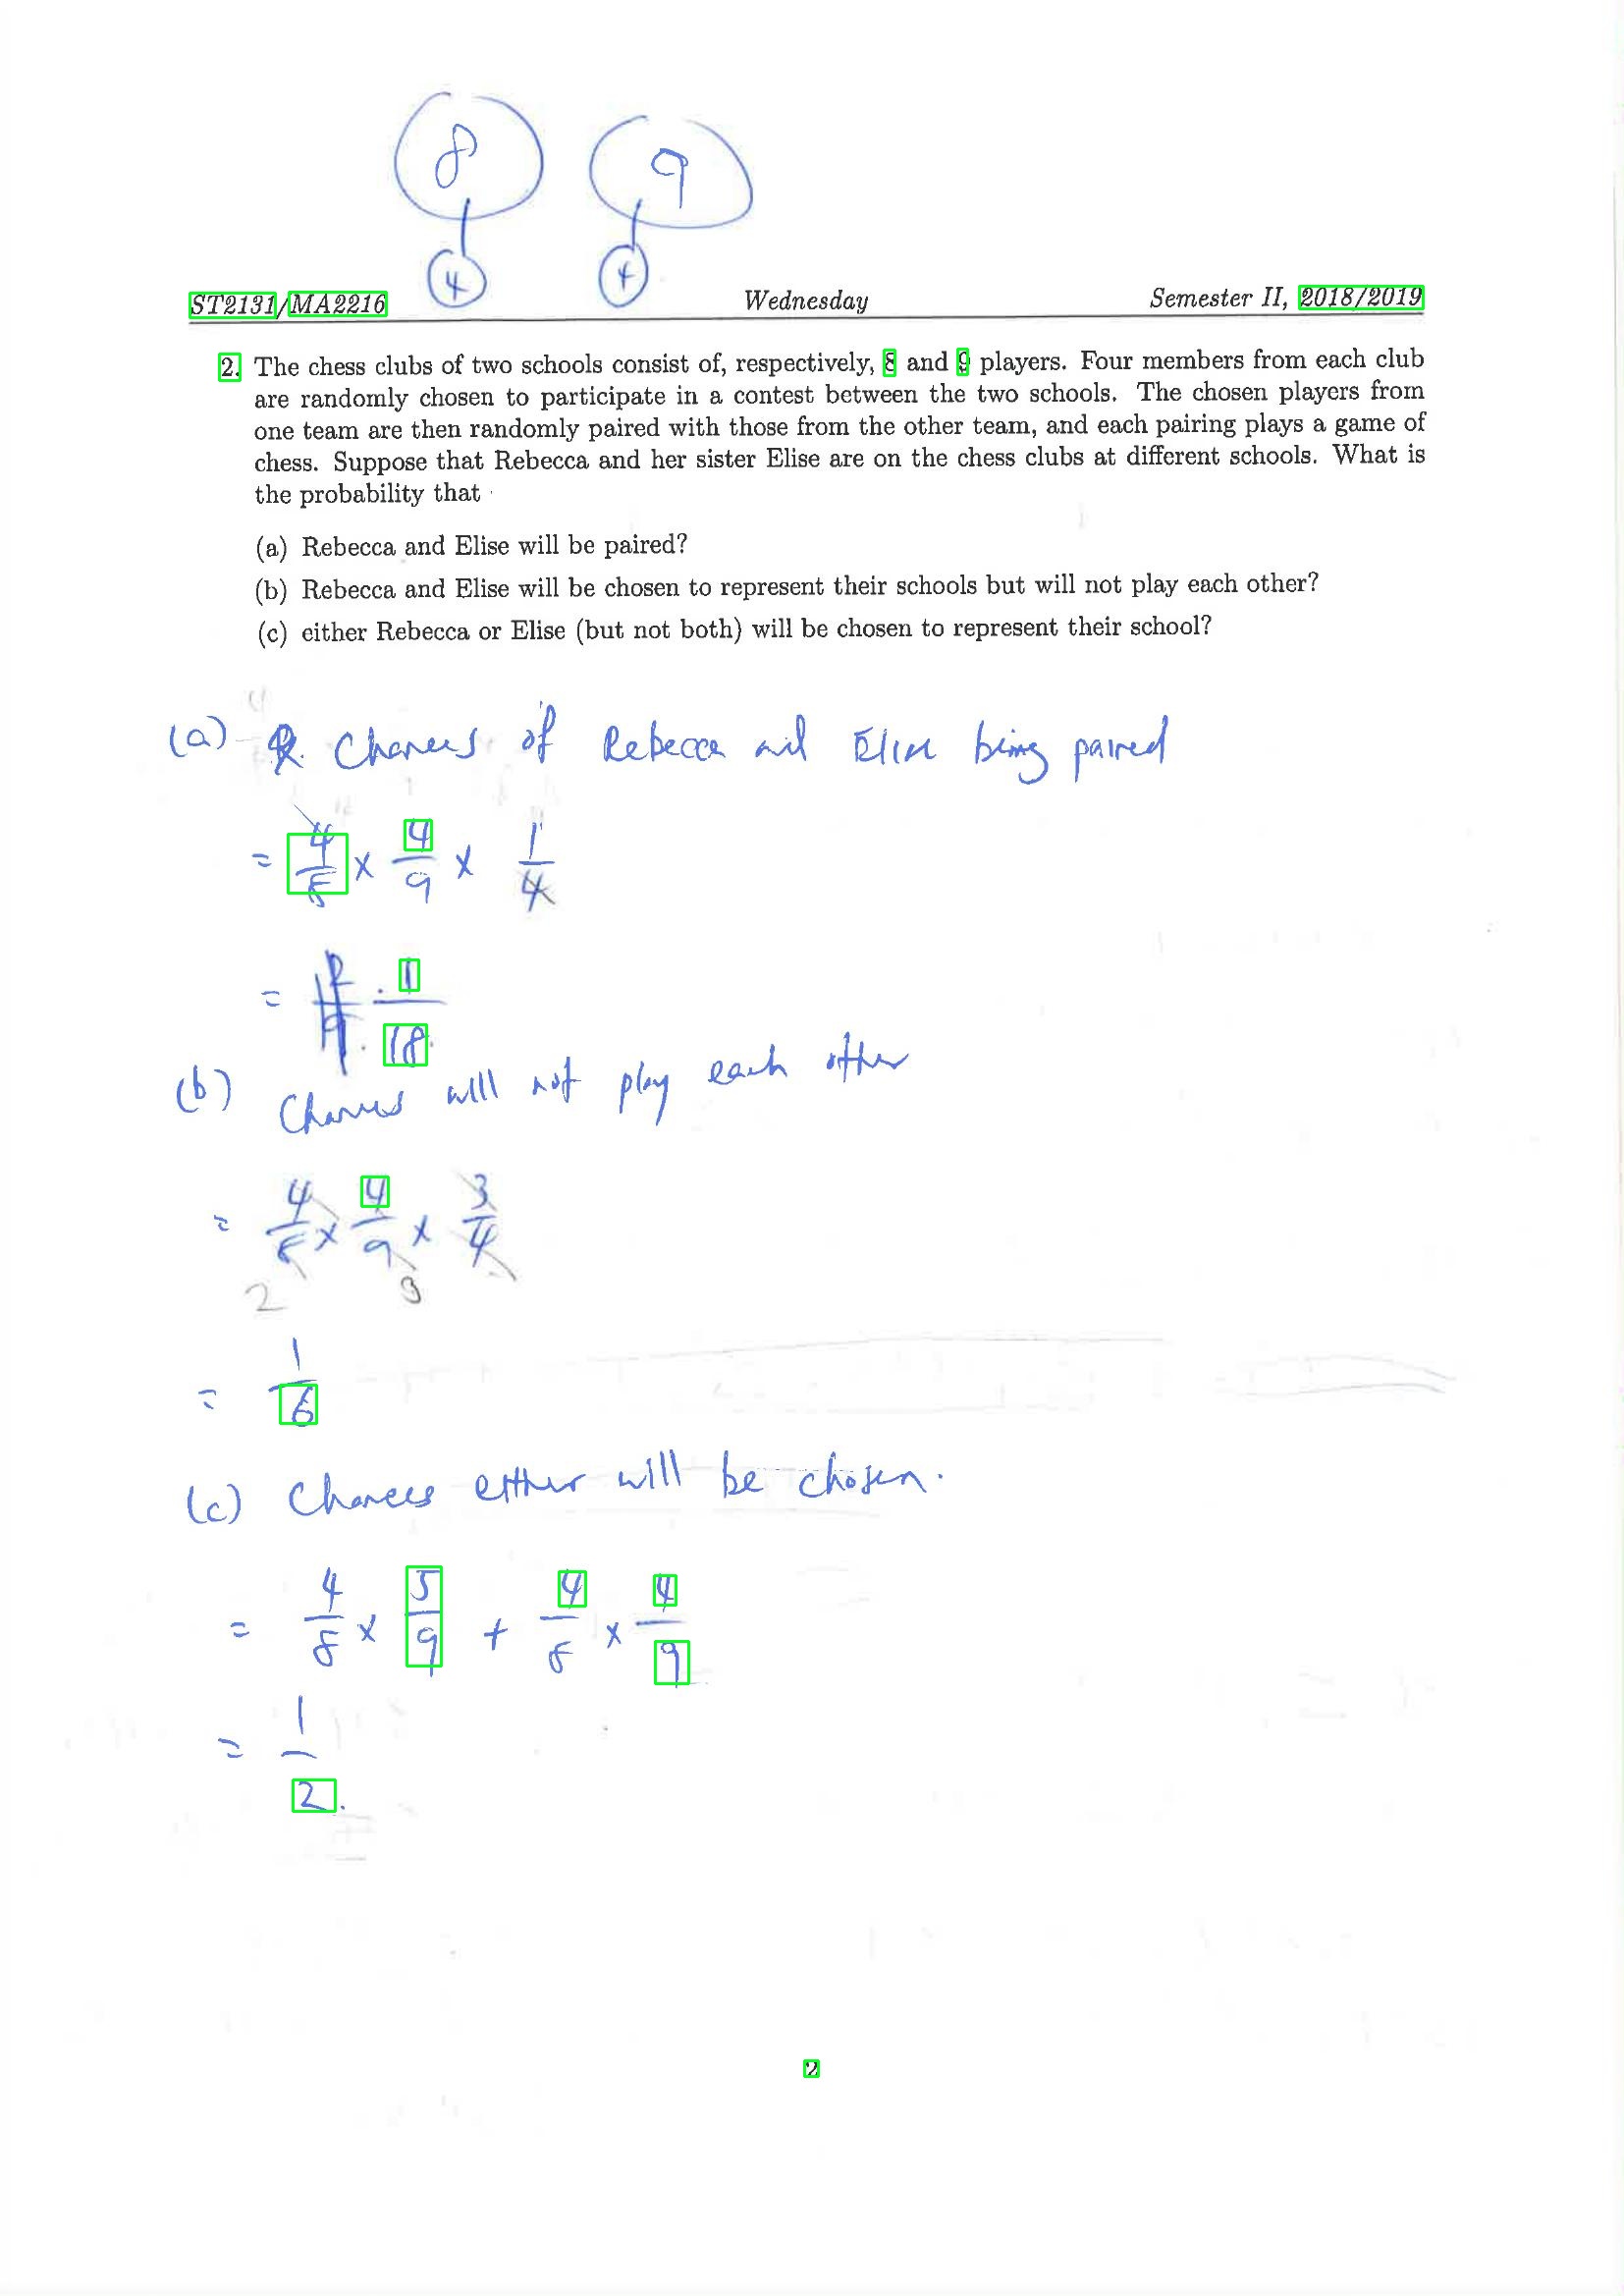 8 9
4 4
ST2131/MA2216 Wednesday Semester II, 2018/2019
2. The chess clubs of two schools consist of, respectively, 8 and 9 players. Four members from each club
are randomly chosen to participate in a contest between the two schools. The chosen players from
one team are then randomly paired with those from the other team, and each pairing plays a game of
chess. Suppose that Rebecca and her sister Elise are on the chess clubs at different schools. What is
the probability that
(a) Rebecca and Elise will be paired?
(b) Rebecca and Elise will be chosen to represent their schools but will not play each other?
(c) either Rebecca or Elise (but not both) will be chosen to represent their school?
(a) Chances of Rebecca and Elise being paired
= 4/8 × 4/9 × 1/4
= 1/18
(b) Chances will not play each other
= 4/8 × 4/9 × 3/4
2 3
= 1/6
(c) Chances either will be chosen.
= 4/8 × 5/9 + 4/8 × 4/9
= 1/2.
2